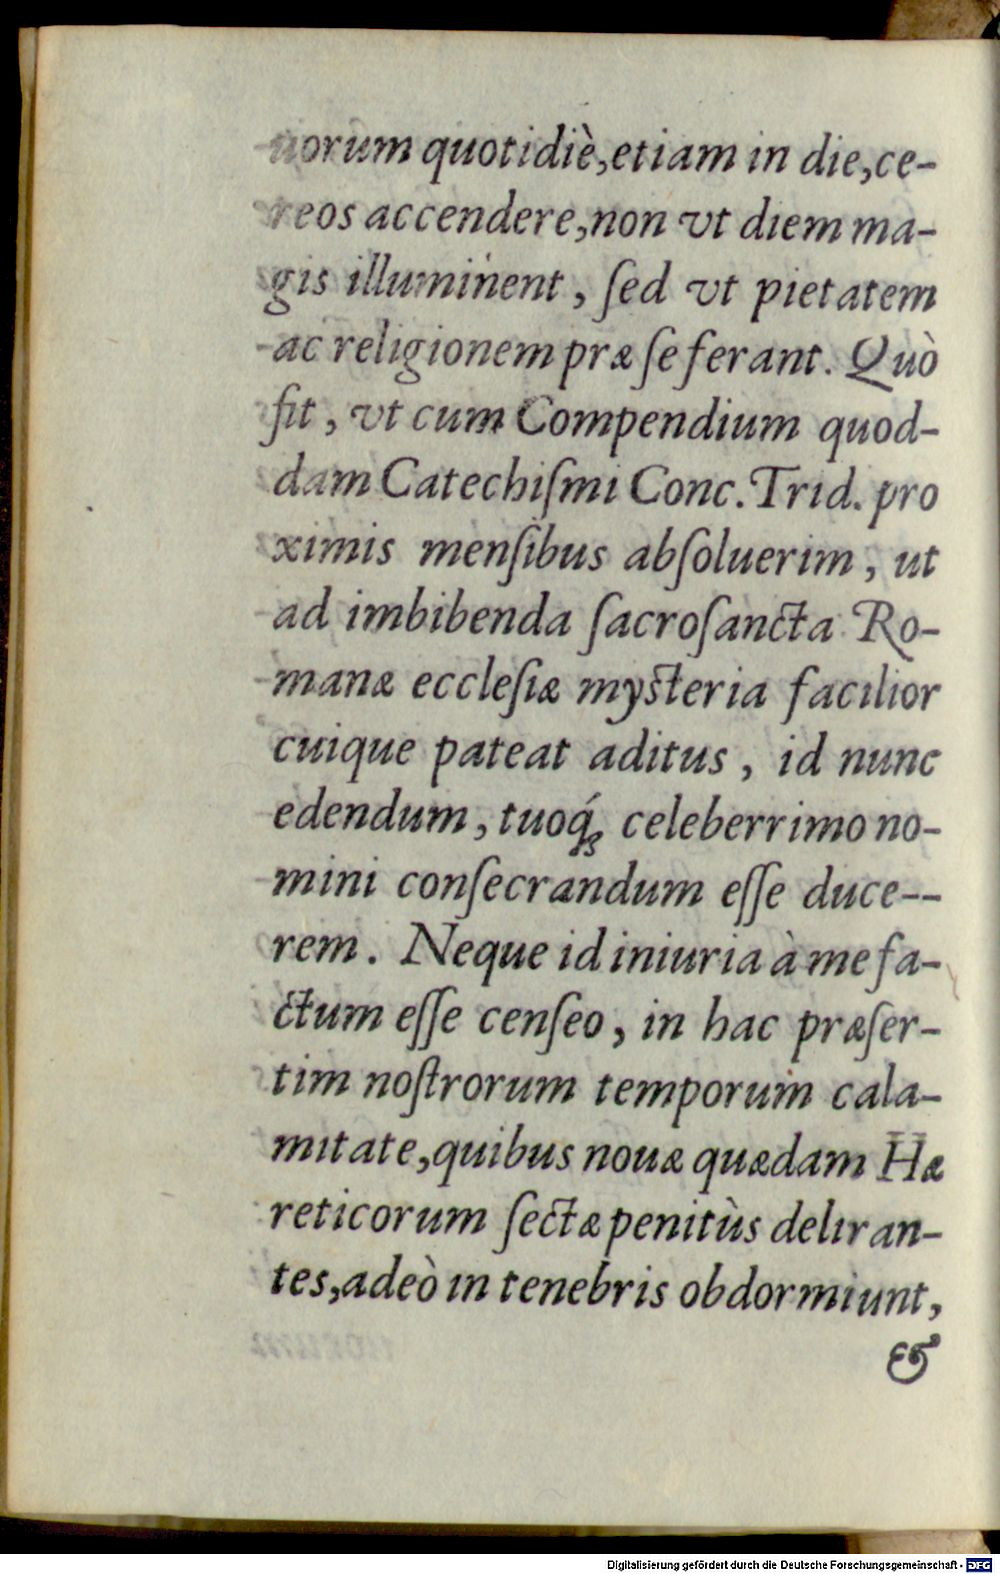 uorum quotidiè,etiam in die,ce-
reos accendere,non vt diem ma-
gis illuminent, ſed vt pietatem
ac religionem præ ſe ferant. Quò
fit, vt cum Compendium quod-
dam Catechiſmi Conc. Trid. pro
ximis menſibus abſoluerim, ut
ad imbibenda ſacroſancta Ro-
manæ eccleſiæ myſteria facilior
cuique pateat aditus, id nunc
edendum, tuoq́ꝫ celeberrimo no-
mini conſecrandum eſſe duce--
rem. Neque id iniuria à me fa-
ctum eſſe cenſeo, in hac præſer-
tim noſtrorum temporum cala-
mitate,quibus nouæ quædam Hæ
reticorum ſectæ penitùs deliran-
tes,adeò in tenebris obdormiunt,
&
Digitalisierung gefördert durch die Deutsche Forschungsgemeinschaft - DFG